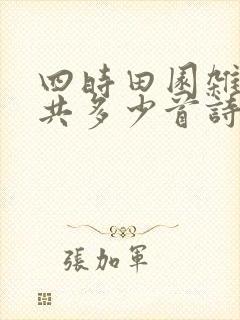 四時田園雜
共多少首詩
張加軍